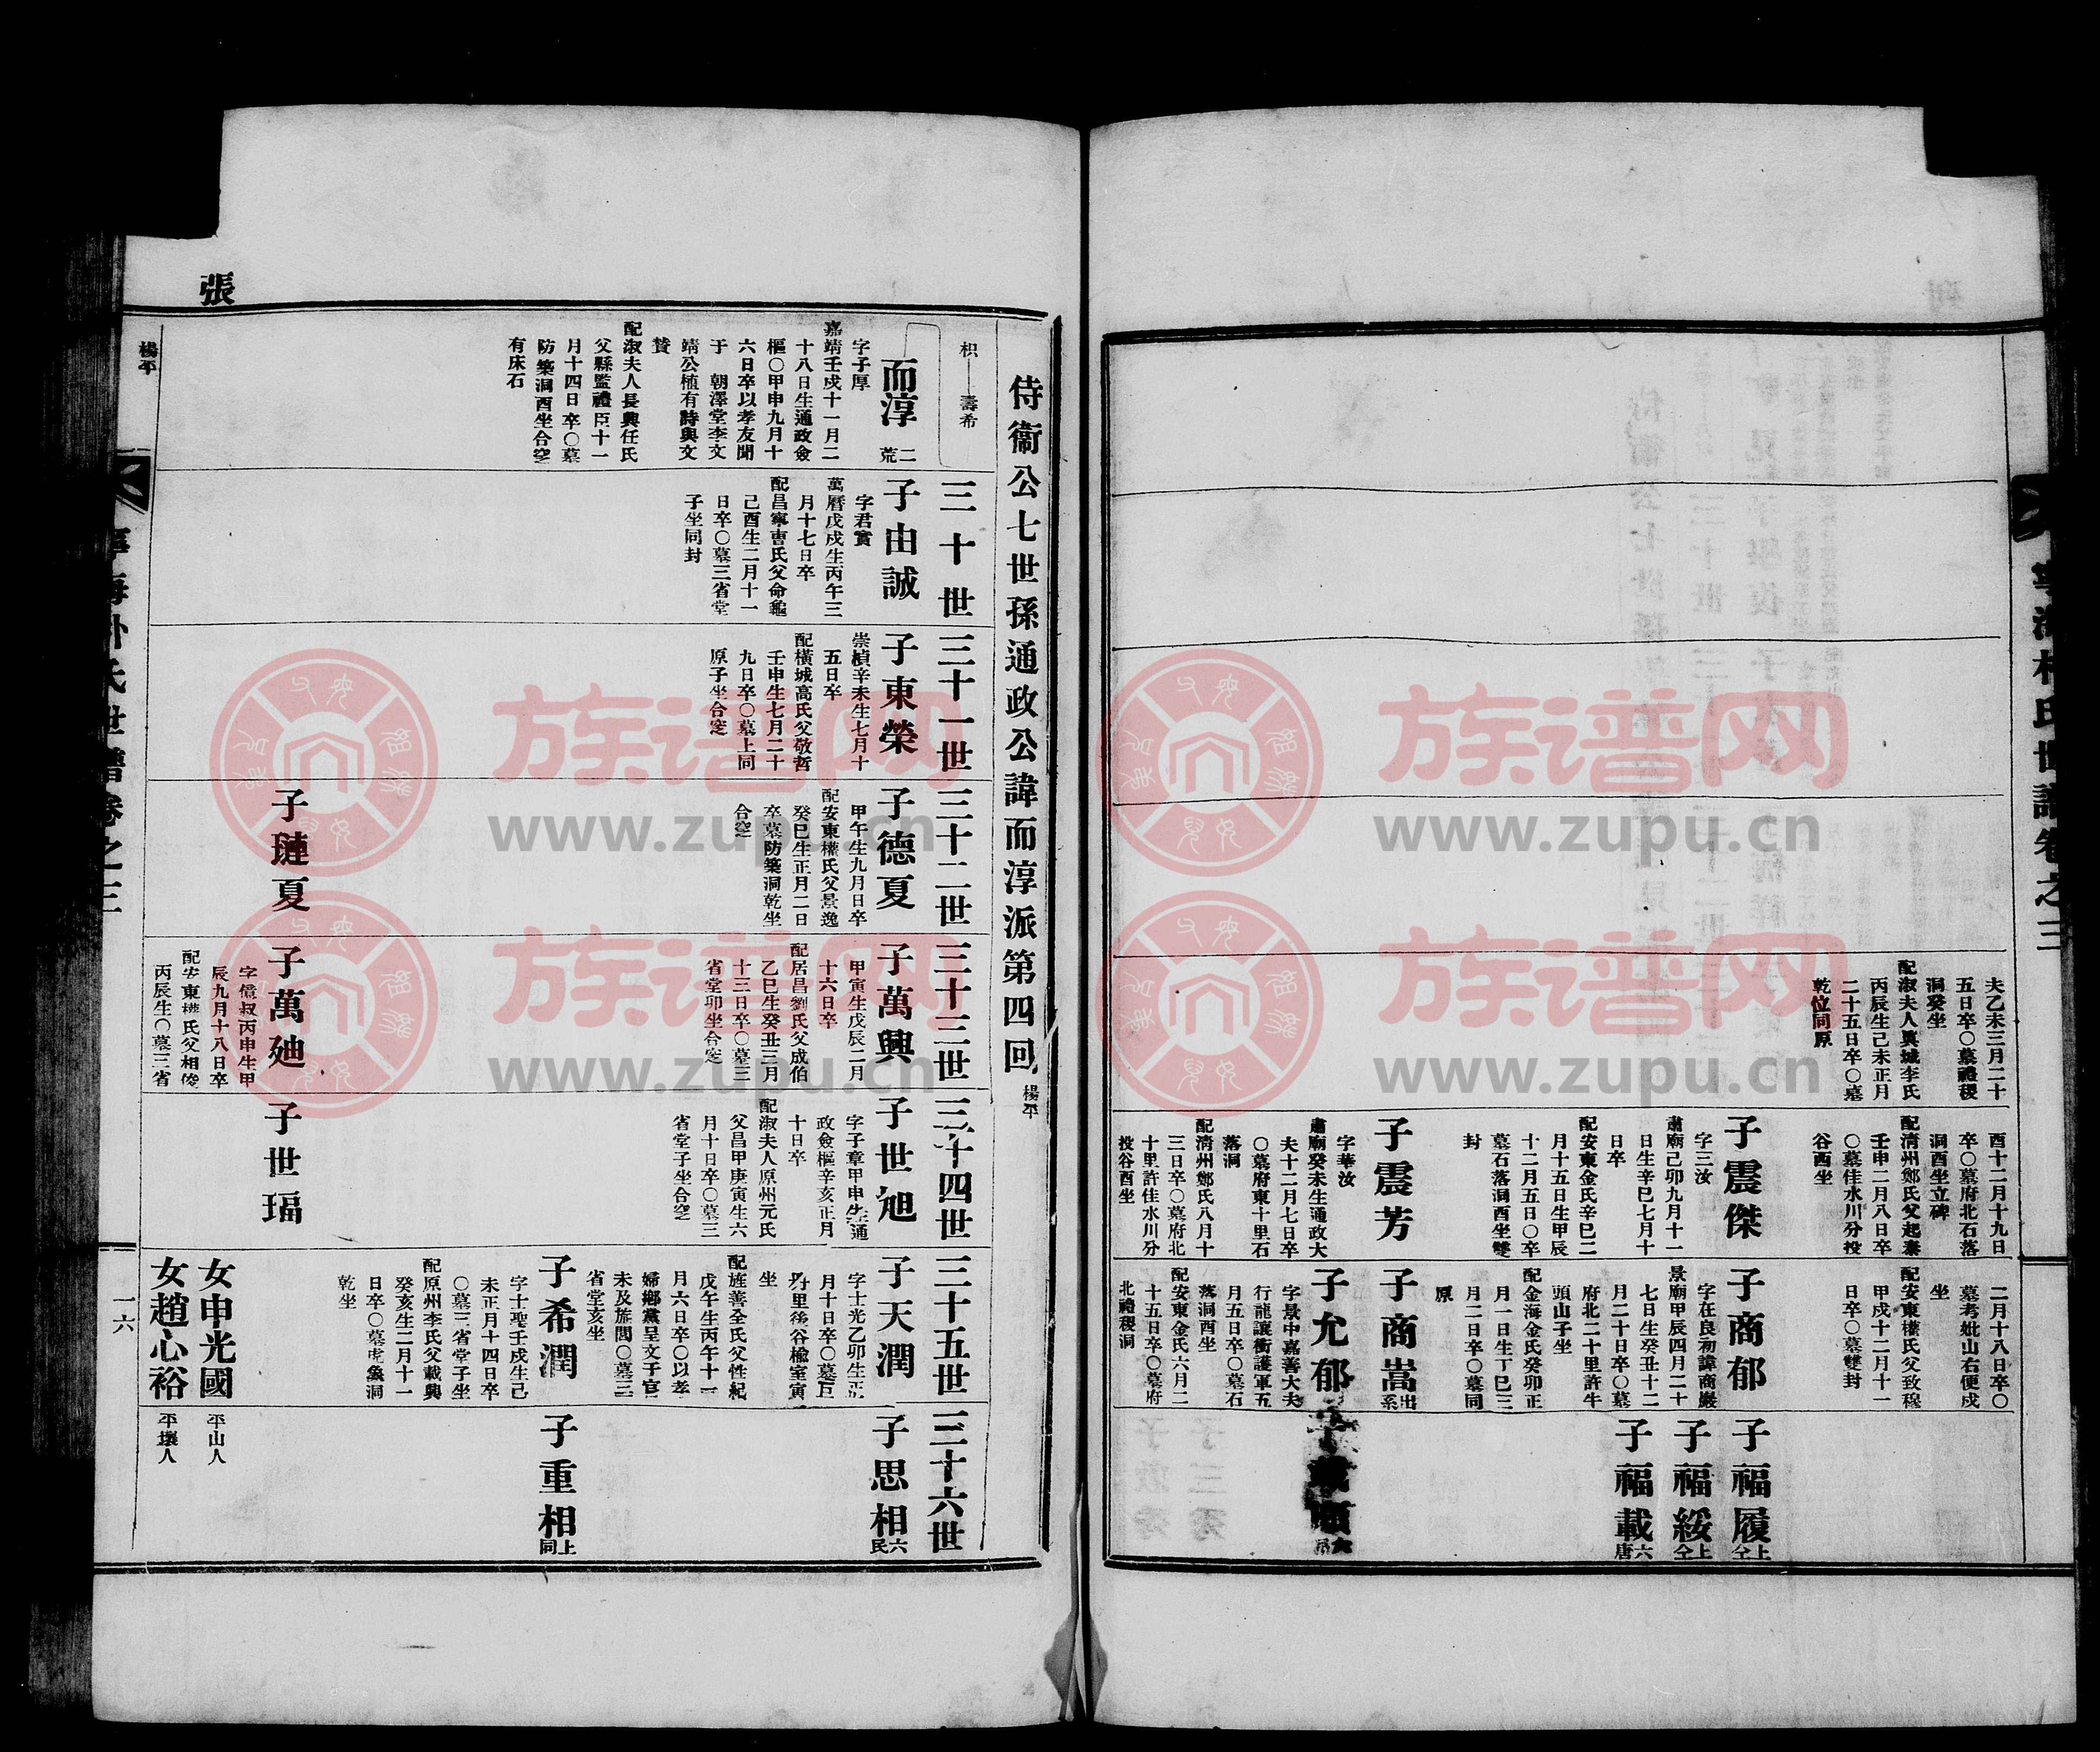 夫乙未三月二十
五日卒〇墓禮稷
洞癸坐
配淑夫人興城李氏
丙辰生己未正月
二十五日卒〇墓
乾位同原
酉十二月十九日
卒〇墓府北石落
洞酉坐立碑
配清州鄭氏父起泰
壬申二月八日卒
〇墓佳水川分投
谷酉坐
子震傑
字三汝
肅廟己卯九月十一
日生辛巳七月十
日卒
配安東金氏辛巳二
月十五日生甲辰
十二月五日〇卒
墓石落洞酉坐雙
封
子震芳
字華汝
肅廟癸未生通政大
夫十二月七日卒
〇墓府東十里石
落洞
配清州鄭氏八月十
三日卒〇墓府北
十里許佳水川分
投谷酉坐
二月十八日卒〇
墓考妣山右便戌
坐
配安東權氏父致穆
甲戌十二月十一
日卒〇墓雙封
子商郁
字在良初諱商巖
景廟甲辰四月二十
七日生癸丑十二
月二十日卒〇墓
府北二十里許牛
頭山子坐
配金海金氏癸卯正
月一日生丁巳三
月二日卒〇墓同
原
子商嵩 出系
子允郁
字景中嘉善大夫
行龍讓衛護軍五
月五日卒〇墓石
落洞酉坐
配安東金氏六月二
十五日卒〇墓府
北禮稷洞
子福履 上仝
子福綏 上仝
子福載 六唐
寧海朴氏世譜卷之三
侍衞公七世孫通政公諱而淳派第四回 楊平
枳——壽希
而淳 二荒
字子厚
嘉靖壬戌十一月二
十八日生通政僉
樞〇甲申九月十
六日卒以孝友聞
于 朝澤堂李文
靖公植有詩與文
贊
配淑夫人長興任氏
父縣監禮臣十一
月十四日卒〇墓
防築洞酉坐合窆
有床石
三十世
子由誠
字君實
萬曆戊戌生丙午三
月十七日卒
配昌寧曺氏父命龜
己酉生二月十一
日卒〇墓三省堂
子坐同封
三十一世
子東榮
崇楨辛未生七月十
五日卒
配橫城高氏父敬哲
壬申生七月二十
九日卒〇墓上同
原子坐合窆
三十二世
子德夏
甲午生九月日卒
配安東權氏父景逸
癸巳生正月二日
卒墓防築洞乾坐
合窆
子璉夏
三十三世
子萬興
甲寅生戊辰二月
十六日卒
配居昌劉氏父成伯
乙巳生癸丑三月
十三日卒〇墓三
省堂卯坐合窆
子萬廸
字億叔丙申生甲
辰九月十八日卒
配安東權氏父相俊
丙辰生〇墓三省
三十四世
子世旭
字子章甲申生通
政僉樞辛亥正月
十日卒
配淑夫人原州元氏
父昌甲庚寅生六
月十日卒〇墓三
省堂子坐合窆
子世瑙
三十五世
子天潤
字士光乙卯生正
月十日卒〇墓
對里後谷楡室寅
坐
配旌善全氏父性紀
戊午生丙午十一
月六日卒〇以孝
婦鄉黨呈文于官
未及旌閭〇墓三
省堂亥坐
子希潤
字士聖壬戌生己
未正月十四日卒
〇墓三省堂子坐
配原州李氏父載興
癸亥生二月十一
日卒〇墓虎象洞
乾坐
女申光國
女趙心裕
三十六世
子思相 六民
子重相 上同
平山人
平壤人
張
楊平
寧海朴氏世譜卷之三
一六
族谱网
www.zupu.cn
族谱网
www.zupu.cn
族谱网
www.zupu.cn
族谱网
www.zupu.cn